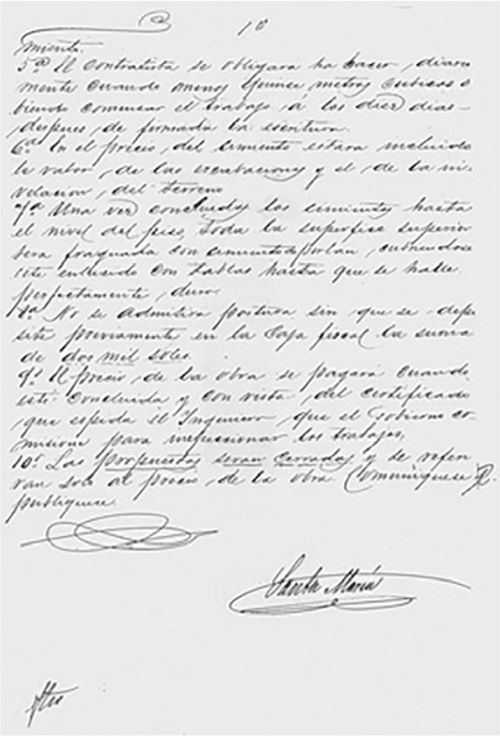 10
miento.
5ª. El contratista se obligará ha hacer, diara
mente cuando menos quince metros cubicos
biendo comenzar el trabajo a los diez dias
despues de firmada la escritura.
6ª. En el precio, del cimiento estara incluido
le valor, de las escabaciones y el de la ni
velacion, del terreno
7ª. Una vez concluidos los cimientos hasta
el nivel del piso, toda la superfice superior
sera fraguada con cimiento portlan, cubriendose
este enlucido con tablas hasta que se halle
perfectamente, duro.
8ª. No se admitira postura sin que se depo
site previamente en la Caja fiscal la suma
de dos mil soles.
9ª. El precio, de la obra se pagará cuando
esté concluida y con vista, del certificado
que espida el Ingeniero, que el Gobierno co
misione para inspeccionar los trabajos,
10ª. Las porpuestas seran cerradas y se refen
ran solo al precio, de la obra. Comuniquese
publiquese.
Santa María